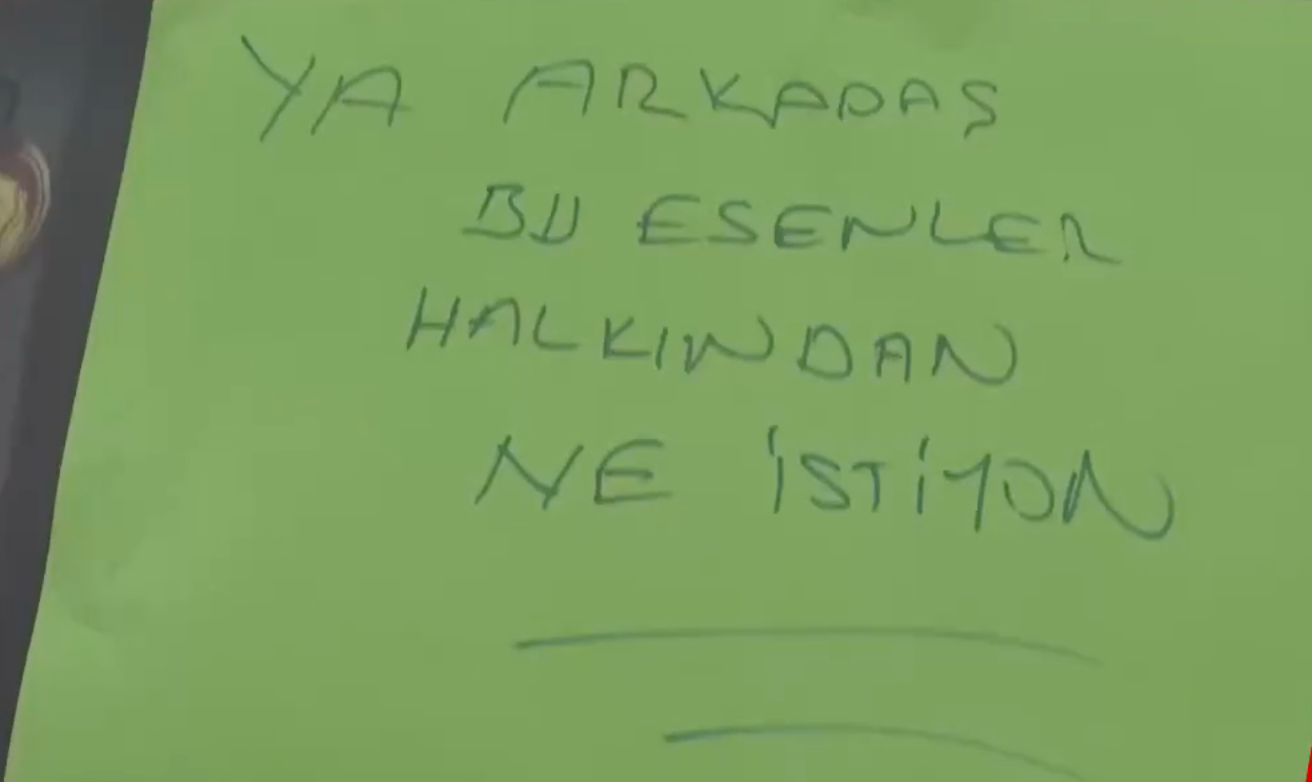 YA ARKADAŞ
BU ESENLER
HALKINDAN
NE İSTİYON